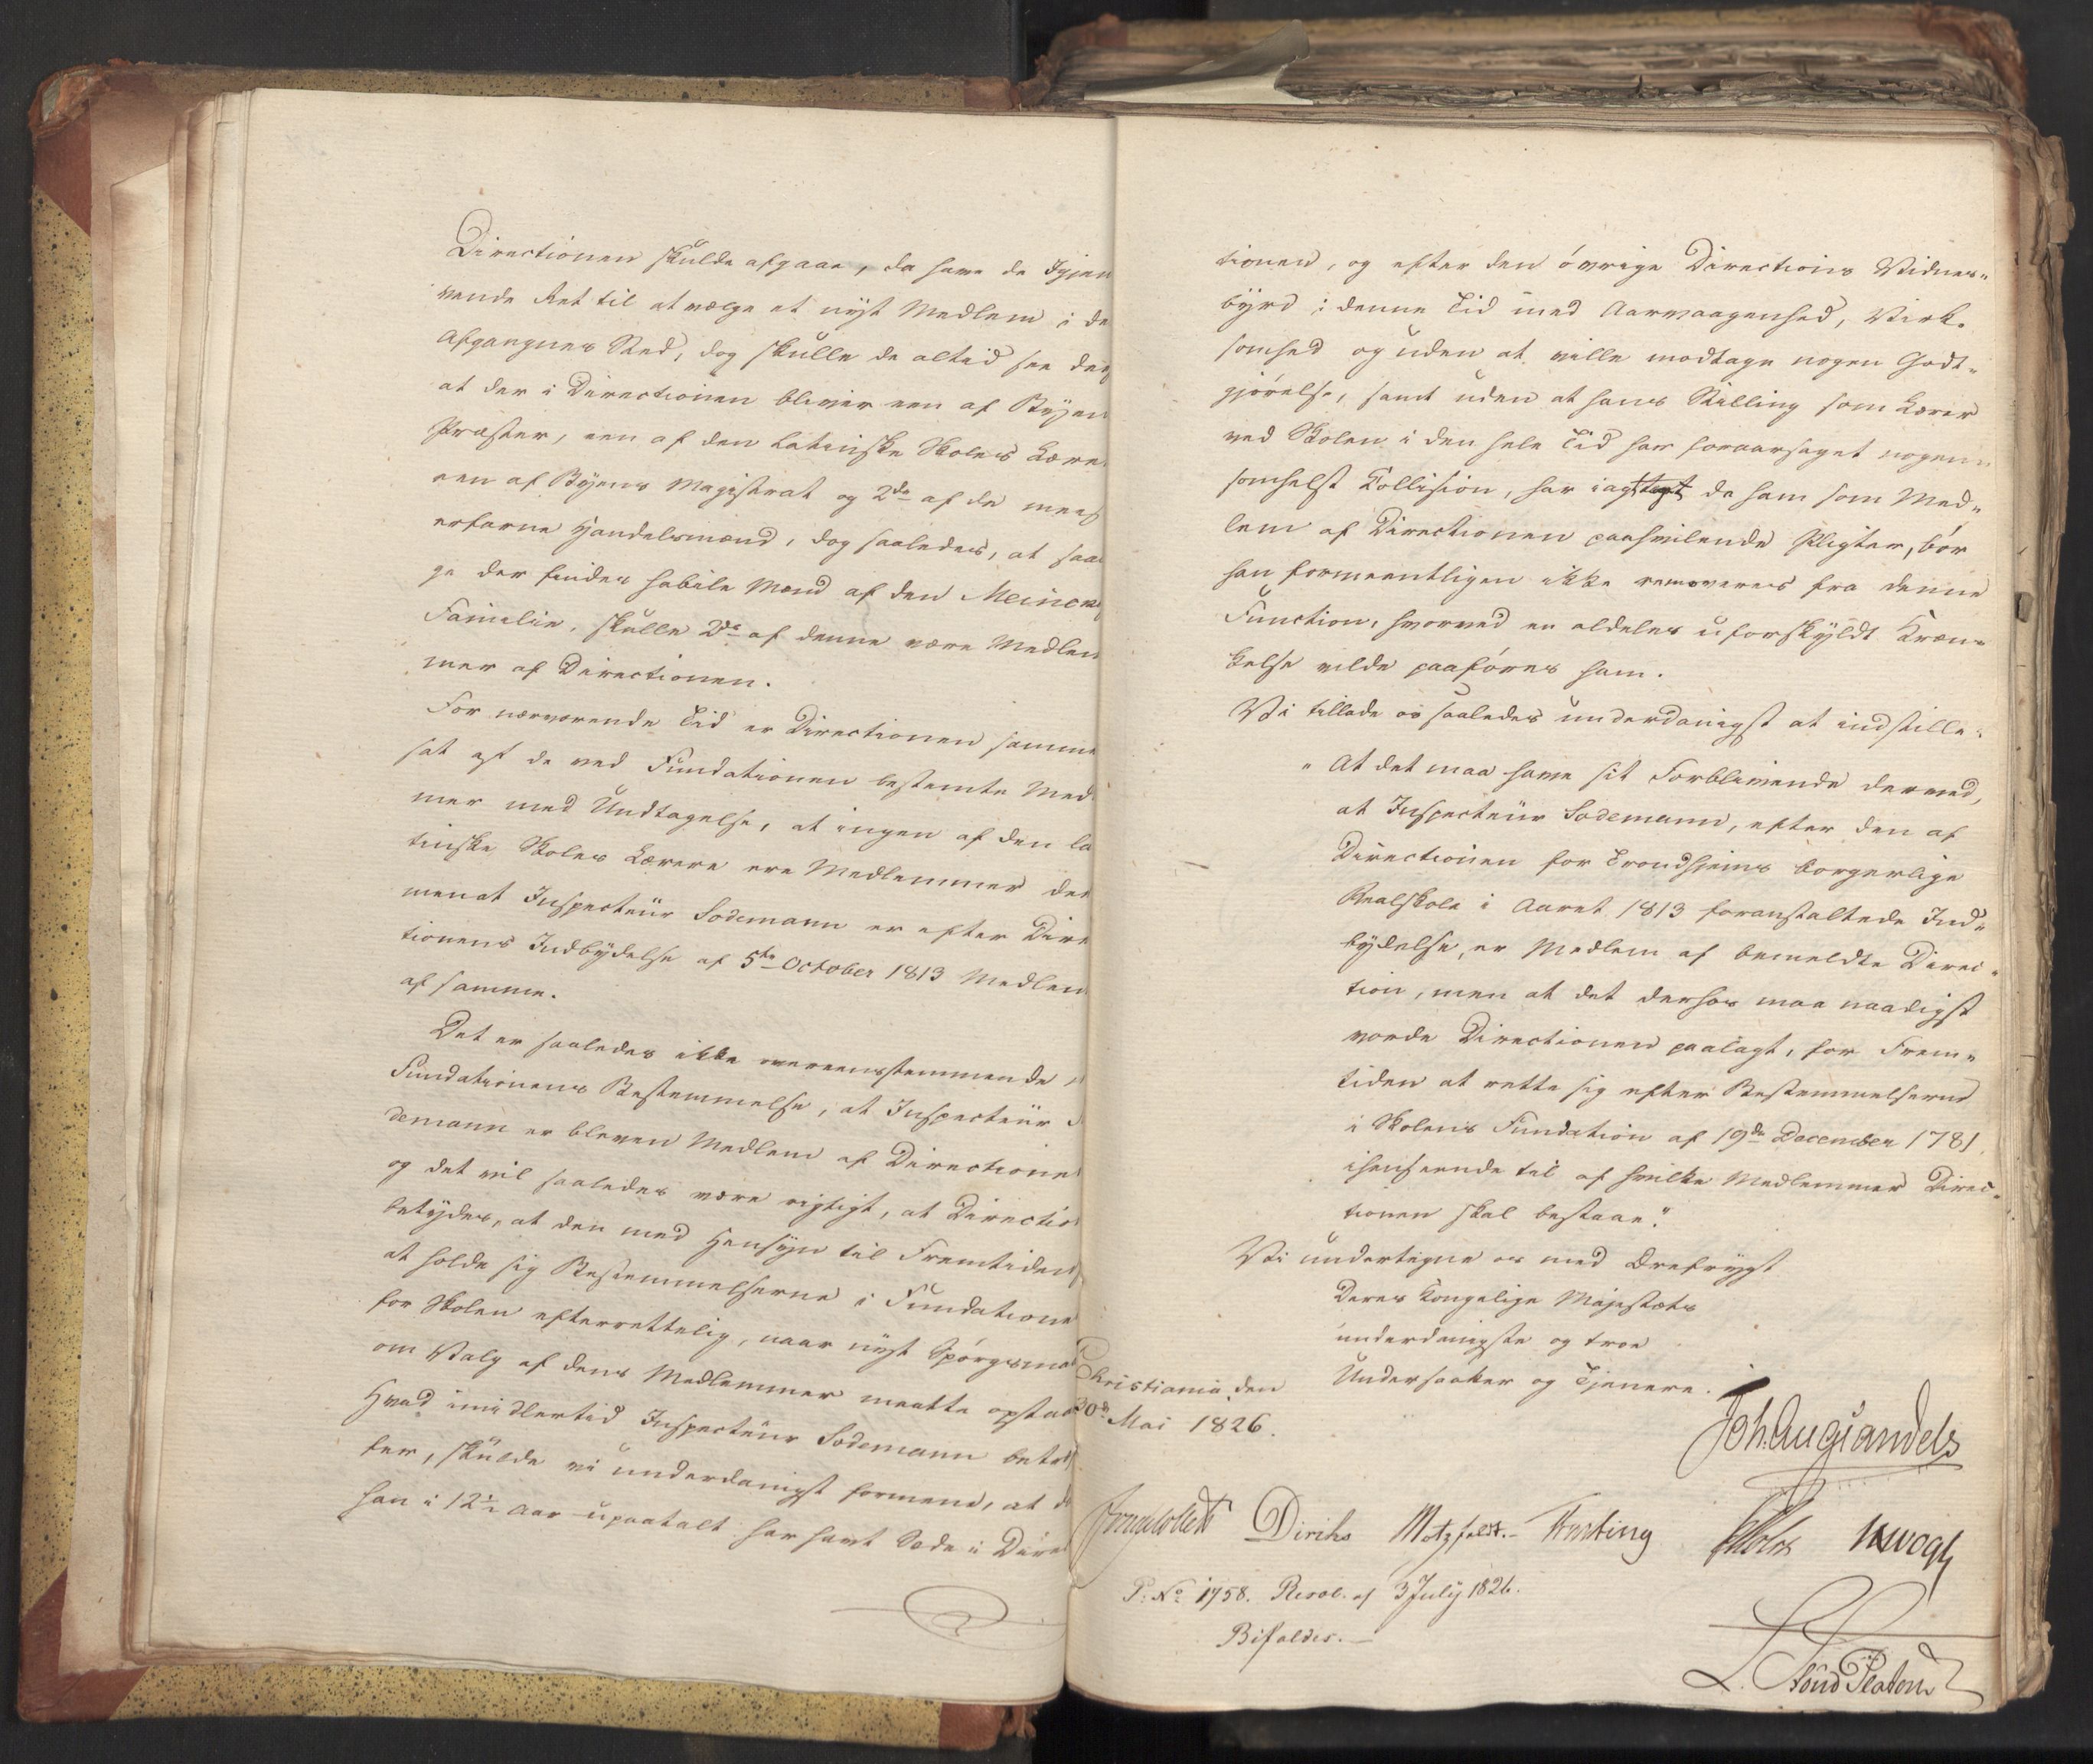 Directionen skulde afgaae, da have de Igjen
værende Ret til at vælge et nyt Medlem i de
Afgangnes Sted, dog skulle de altid see der
at der i Directionen bliver een af Byen
Præster, een af den latinske Skoles Lære
een af Byens Magistrat og 2de af de mees
erfarne Handelsmænd, dog saaledes, at saa
ge der findes habile Mænd af den Meincke
Familie, skulle 2de af denne være Medlem
mer af Directionen.
For nærværende Tid er Directionen samme
sat af de ved Fundationen bestemte Med
mer med Undtagelse, at ingen af den la
tinske Skoles Lærere ere Medlemmer der
men at Inspecteur Sodemann er efter Dire
tionens Indbydelse af 5te October 1813 Medlem
af samme.
Det er saaledes ikke overeensstemmende
Fundationens Bestemmelse, at Inspecteur
demann er bleven Medlem af Directione
og det vil saaledes være rigtigt, at Directio
betydes, at den med Hensyn til Fremtiden
at holde sig Bestemmelserne i Fundatione
for Skolen efterrettelig, naar nyt Spørgsma
om Valg af dens Medlemmer maatte opstaa
Hvad imidlertid Inspecteur Sodemann betræ
fer, skulde vi underdanigst formene, at d
han i 12½ Aar upaatalt har havt Sæde i Dire
tionen, og efter den øvrige Directions Vidnes„
byrd i denne Tid med Aarvaagenhed, Virk„
somhed og uden at ville modtage nogen Godt„
gjørelse, samt uden at hans Stilling som Lærer
ved Skolen i den hele Tid har foraarsaget nogen„
somhelst Collision, har iagttagt de ham som Med„
lem af Directionen paahvilende Pligter, bør
han formeentligen ikke removeres fra denne
Function, hvorved en aldeles uforskyldt Kræn„
kelse vilde paaføres ham.
Vi tillade os saaledes underdanigst at indstille:
„At det maa have sit Forblivende dermed,
at Inspecteur Sodemann, efter den af
Directionen for Trondhjems borgerlige
Realskole i Aaret 1813 foranstaltede Ind„
bydelse, er Medlem af bemeldte Direc„
tion, men at det derhos maa naadigst
vorde Directionen paalagt, for Frem„
tiden at rette sig efter Bestemmelserne
i Skolens Fundation af 19de December 1781,
ihenseende til af hvilke Medlemmer Direc„
tionen skal bestaae."
Vi undertegne os med Ærefrygt
Deres Kongelige Majestæts
underdanigste og troe
Undersaatter og Tjenere.
Christiania den
30te Mai 1826.
Joh. Aug Sandels
Jonas Collett Diriks Motzfeldt.— Treschow Holst Vogt
P: No 1758. Resol. af 3 July 1826.
Bifaldes.—
L. Stoud Platou